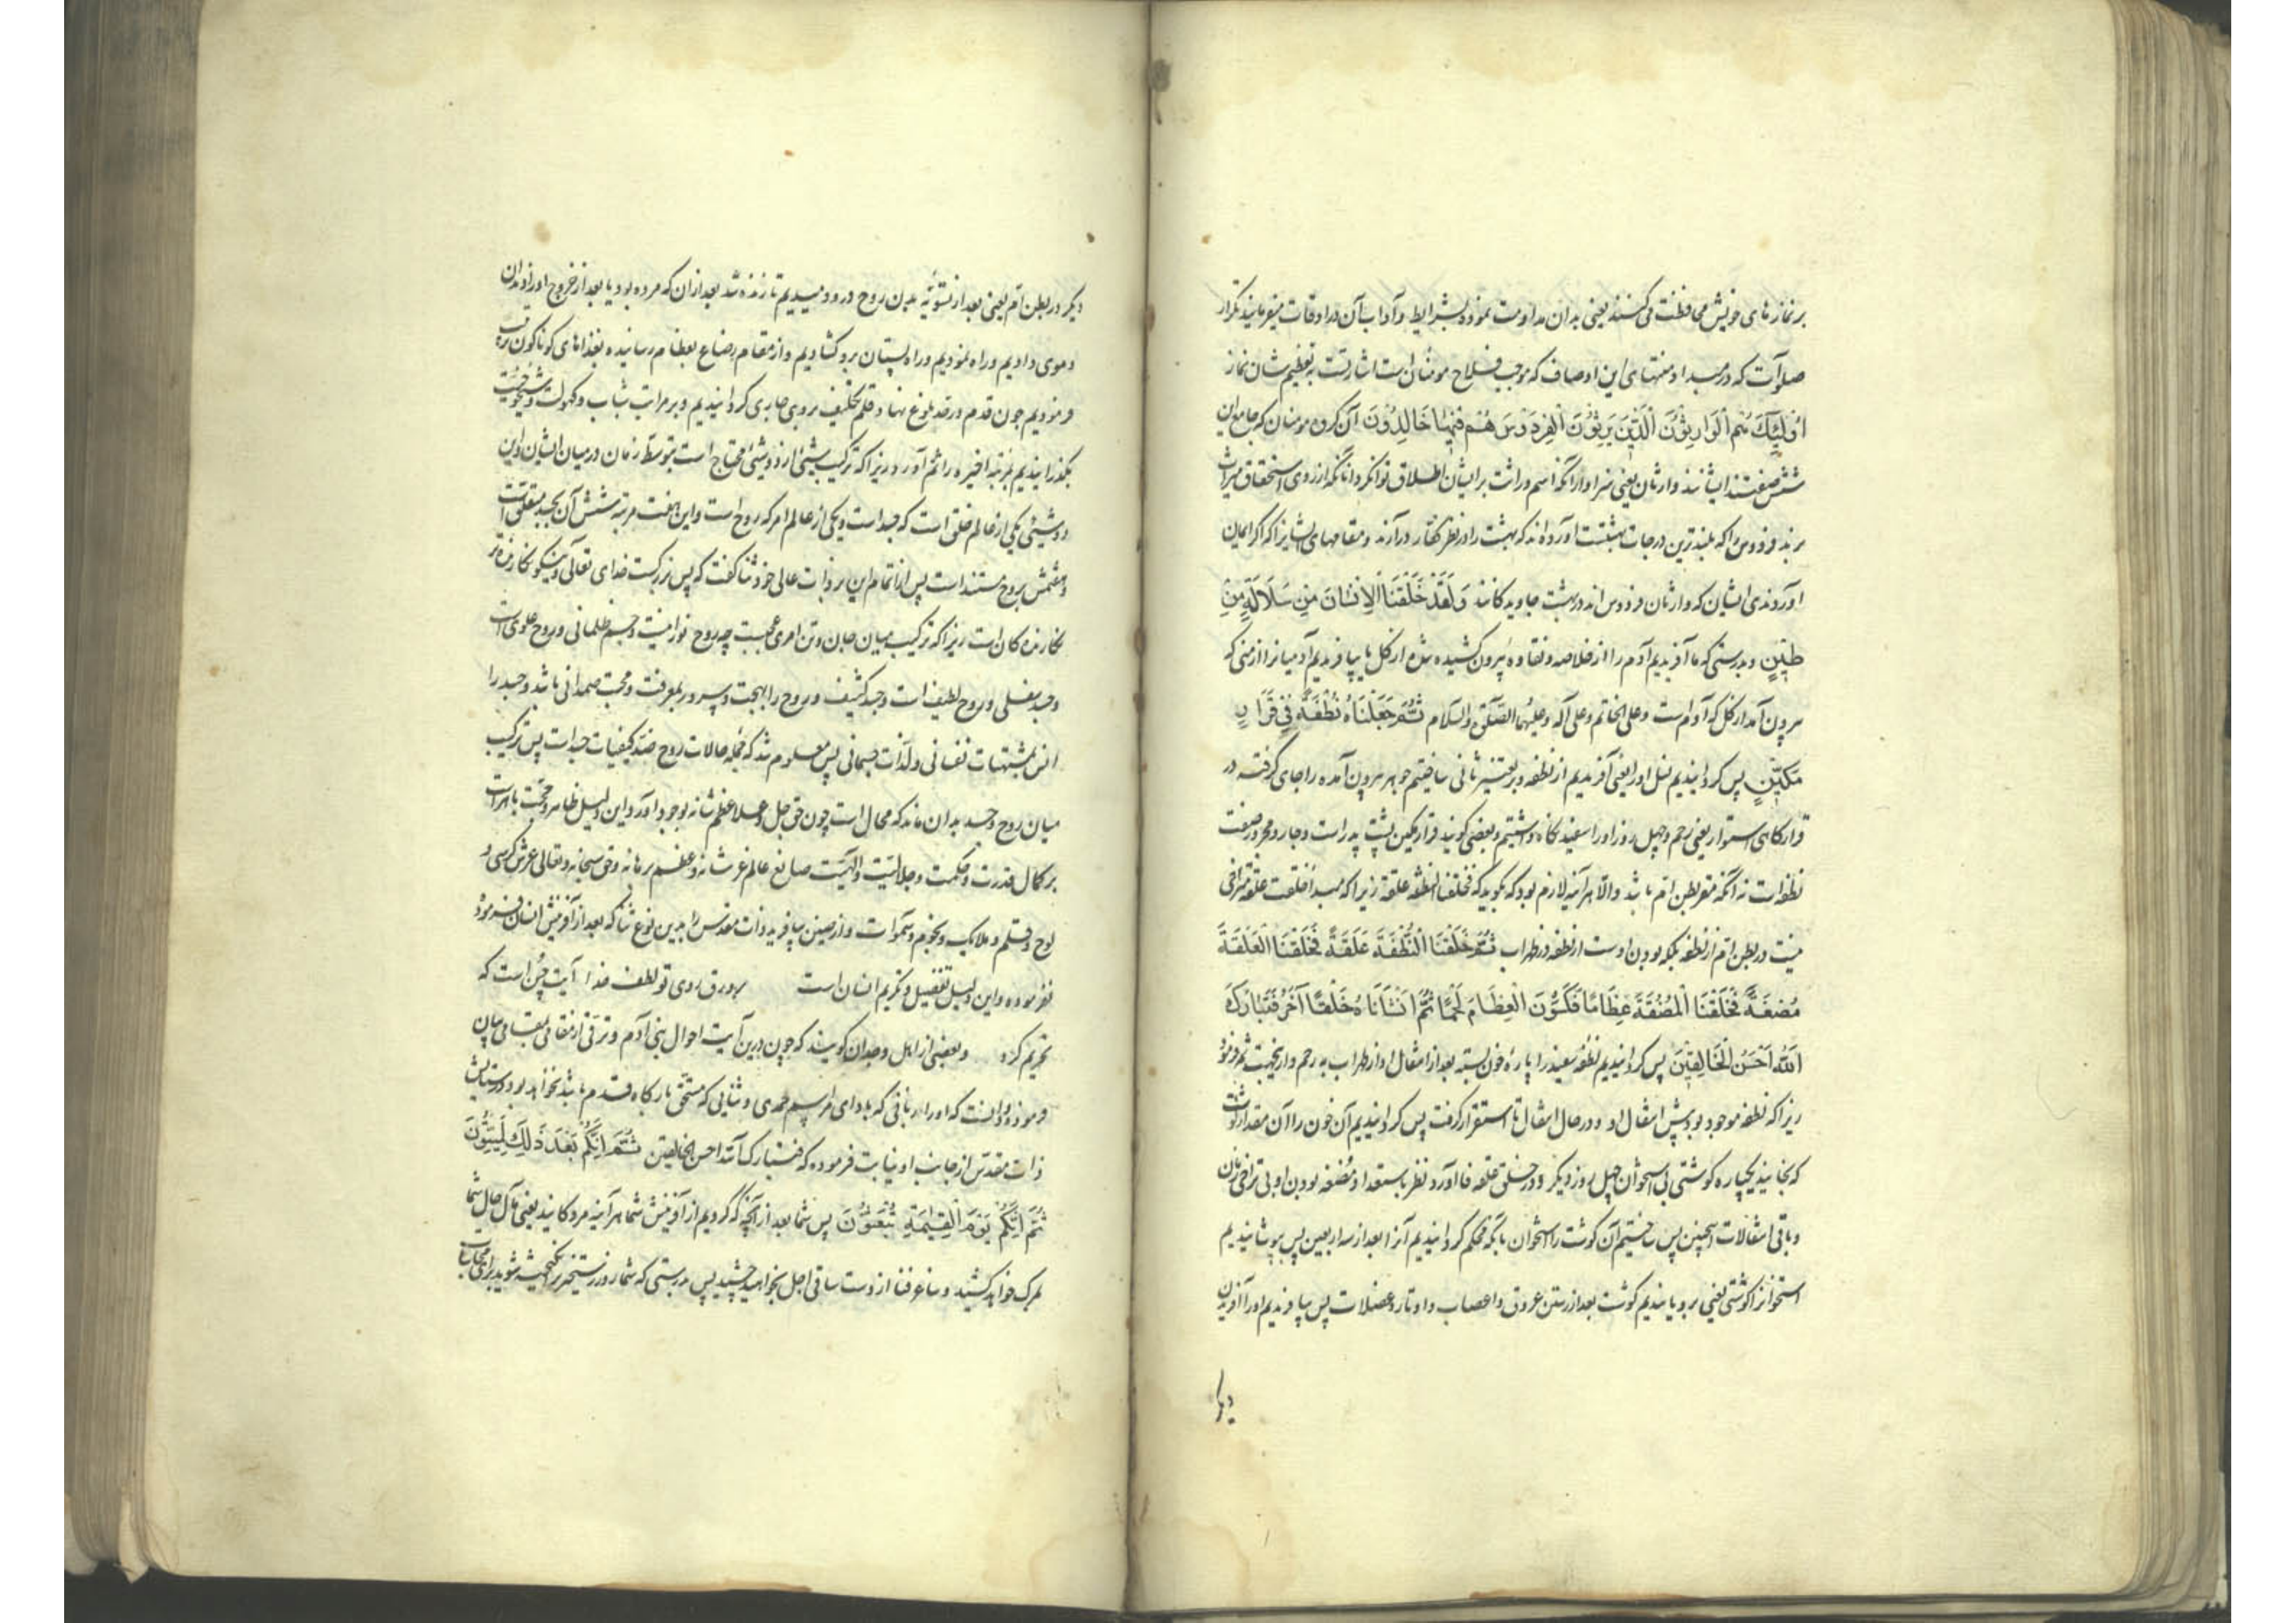 بر نمازهای خویش محافظت می کنند یعنی بدان مداومت نموده بشرایط و آداب آن در اوقات میفرمایند تکرار
صلوٰت که در مبدا و منتهای این اوصاف که موجب فلاح مومنان است اشارتست به تعظیم شان نماز
اُولٰئِكَ هُمُ الْوَارِثُونَ الَّذِينَ يَرِثُونَ الْفِرْدَوْسَ هُمْ فِيهَا خَالِدُونَ آن کروه مومنان که جامع این
شش صفتند ایشانند وارثان یعنی سزاوار آنکه اسم وراثت بر ایشان اطلاق توانکرد آنانکه از روی استحقاق میراث
برند فردوس را که بلندترین درجات بهشتست آورده اند که بهشت را در نظر کفار درآرند و مقامهای ایشانرا که اگر ایمان
آوردندی ایشان که وارثان فردوس اند در بهشت جاوید کانند وَلَقَدْ خَلَقْنَا الْاِنْسَانَ مِنْ سُلَالَةٍ مِنْ
طِينٍ و بدرستی که ما آفریدیم آدم را از خلاصه و نقاوه بیرون کشیده شده از کل یا بیافریدیم آدمیانرا از منی که
بیرون آمد از کل که آدم است وعلی الخاتم وعلی آله وعلیهما الصلوة والسلام ثُمَّ جَعَلْنَاهُ نُطْفَةً فِي قَرَارٍ
مَكِينٍ پس کردانیدیم نسل او را یعنی آفریدیم از نطفه و بر تفسیر ثانی ساختیم جوهر بیرون آمده را جای کرفته در
قرارکاهی استوار یعنی رحم و چهل روز او را سفید نکاه داشتیم و بعضی کویند قرار مکین پشت پدر است و جار و مجرور صفت
نطفه است نه آنکه مقر بطن ام باشد والا هر آینه لازم بود که بکوید که فخلقنا النطفه علقة زیرا که مبدا خلقت علقه متراخی
نیست در بطن ام از نطفه بلکه بودن اوست از نطفه در ظهر اب ثُمَّ خَلَقْنَا النُّطْفَةَ عَلَقَةً فَخَلَقْنَا الْعَلَقَةَ
مُضْغَةً فَخَلَقْنَا الْمُضْغَةَ عِظَامًا فَكَسَوْنَا الْعِظَامَ لَحْمًا ثُمَّ اَنْشَأْنَاهُ خَلْقًا آخَرَ فَتَبَارَكَ
اللّٰهُ اَحْسَنُ الْخَالِقِينَ پس کردانیدیم نطفه سفید را پاره خون بسته بعد از انتقال او از ظهر اب به رحم و ازینجهت ثم فرمود
زیرا که نطفه موجود بود پیش انتقال او و در حال انتقال تا استقرار کرفت پس کردانیدیم آن خون را آن مقدار کوشت
که بخایند یکپاره کوشتی بی استخوان چهل روز دیکر و در خلق علقه فا آورد نظر باستعداد مضغه بودن او بی تراخی زمان
و باقی انتقالات همچنین پس ساختیم آن کوشت را استخوان بآنکه محکم کردانیدیم آنرا بعد از سه اربعین پس بپوشانیدیم
استخوانرا کوشتی یعنی برویانیدیم کوشت بعد از رستن عروق و اعصاب و اوتار و عضلات پس بیافریدیم او را آفریدن
دیکر
دیکر در بطن ام یعنی بعد از تسویه بدن روح درو دمیدیم تا زنده شد بعد از آن که مرده بود یا بعد از خروج او را دندان
و موی دادیم و راه نمودیم و راه پستان برو کشادیم و از مقام رضاع بفطام رسانیده بغذاهای کوناکون تربیت
فرمودیم چون قدم در حد بلوغ نهاد قلم تکلیف بروی جاری کردانیدیم و بر مراتب شباب و کهولت و شیخوخت
بگذرانیدیم مرتبه اخیره را ثم آورد زیرا که ترکیب شیئ از دو شیئ محتاج است بتوسط زمان در میان ایشان و این
دو شیئ یکی از عالم خلق است که جسد است و یکی از عالم امر که روح است و این هفت مرتبه شش آن بجسد متعلق است
و هفتمش بروح مستند است پس از اتمام این بر ذات عالی خود ثنا کفت که پس بزرکست خدای تعالی و نیکو نکارنده تر
نکارنده کان است زیرا که ترکیب میان جان و تن امری عجیب چه روح نورانیست و جسم ظلمانی و روح علوی است
و جسد سفلی و روح لطیف است و جسد کثیف و روح را بهجت و سرور بمعرفت و محبت صمدانی باشد و جسد را
انس بمشتهیات نفسانی ولذات جسمانی پس معلوم شد که جمله حالات روح ضد کیفیات جسد است پس ترکیب
میان روح و جسد بدان ماند که محال است چون حق جل و علا عظم شانه بوجود آورد این دلیل ظاهر و حجت باهر است
بر کمال قدرت و حکمت و جلالیت و الهیت صانع عالم عز شانه و عظم برهانه و حق سبحانه و تعالی عرش و کرسی و
لوح و قلم و ملایک و نجوم و سموات و ارضین بیافرید ذات مقدس را بدین نوع ثنا که بعد از آفرینش انسان فرمود
نفرموده و این دلیل تفضیل و تکریم انسان است بر ورق روی تو لطف خدا آیت حسن است که
تحریر کرد و بعضی از اهل وجدان کویند که چون درین آیت احوال بنی آدم و ترقی از مقامی بمقامی بیان
فرموده و دانست که او را زبانی که بادای مراسم حمدی و ثنایی که مستحق بارکاه قدم باشد نخواهد بود در ستایش
ذات مقدس از جانب او نیابت فرموده که فتبارک الله احسن الخالقین ثُمَّ اِنَّكُمْ بَعْدَ ذٰلِكَ لَمَيِّتُونَ
ثُمَّ اِنَّكُمْ يَوْمَ الْقِيٰمَةِ تُبْعَثُونَ پس شما بعد از آنچه که کردیم از آفرینش شما هر آینه مردکانید یعنی مآل حال شما
بمرک خواهد کشید و ساغر فنا از دست ساقی اجل بخواهید چشید پس بدرستی که شما روز رستخیز برانکیخته شوید برای محاسبات